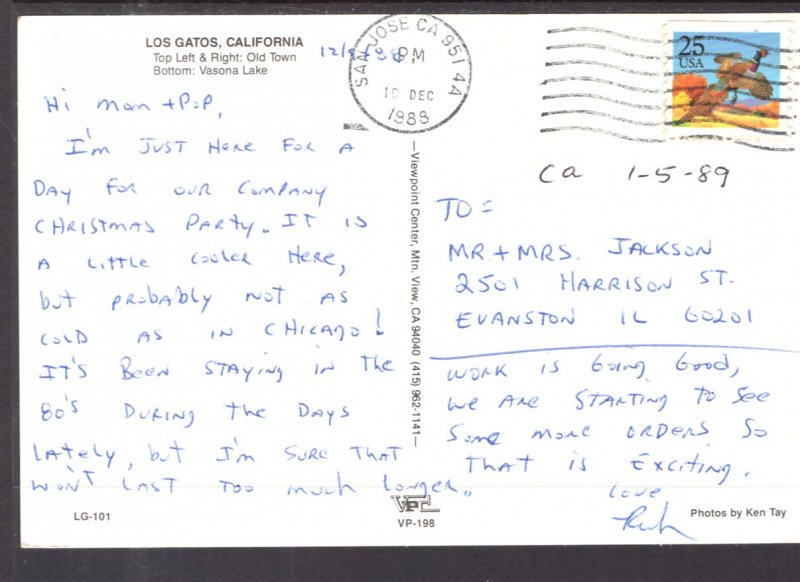 LOS GATOS, CALIFORNIA
Top Left & Right: Old Town
Bottom: Vasona Lake
SAN JOSE CA 951 4A
PM
10 DEC
1988
25
USA
Hi Mom + Pop,
I'm JUST HERE FOR A
DAY FOR OUR COMPANY
CHRISTMAS PARTY. IT IS
A LITTLE COOLER HERE,
but PROBABLY NOT AS
COLD AS IN CHICAGO!
IT'S BEEN STAYING IN THE
80'S DURING THE DAYS
LATELY, but I'M SURE THAT
WON'T LAST TOO MUCH LONGER.
—Viewpoint Center, Mtn. View, CA 94040 (415) 962-1141—
Ca 1-5-89
TO=
MR + MRS. JACKSON
2501 HARRISON ST.
EVANSTON IL 60201
WORK IS GOING GOOD,
WE ARE STARTING TO SEE
SOME MORE ORDERS SO
THAT IS EXCITING.
Love
LG-101
VPC
VP-198
Photos by Ken Tay